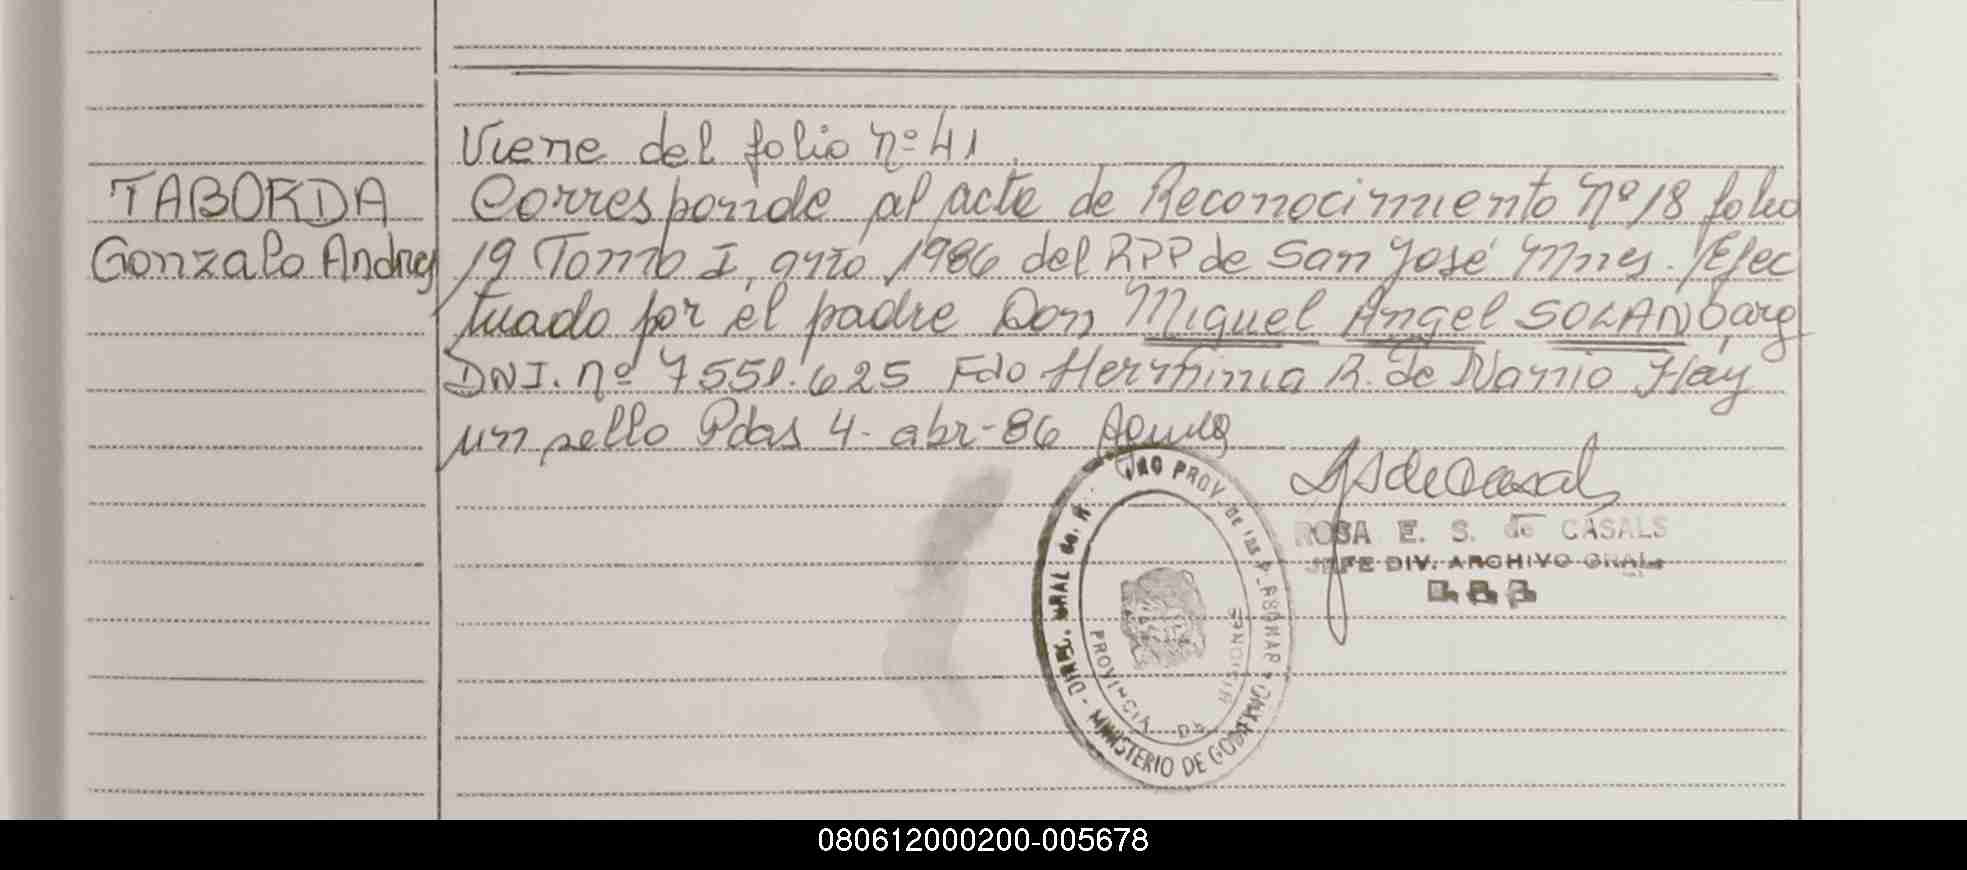 Viene del folio nº 41
TABORDA
Gonzalo Andres
Corresponde al acta de Reconocimiento nº 18 folio
19 Tomo I, año 1986 del RPP de San José Mnes. Efec
tuado por el padre Don Miguel Angel SOLAN, arg
DNI. nº 7.551.625 Fdo Herminia R. de Nannio Hay
un sello Pdas 4-abr-86
ROSA E. S. de CASALS
JEFE DIV. ARCHIVO GRAL.
DIREC. GRAL de PROV. de las PERSONAS
MINISTERIO DE GOBIERNO
PROVINCIA DE MISIONES
080612000200-005678